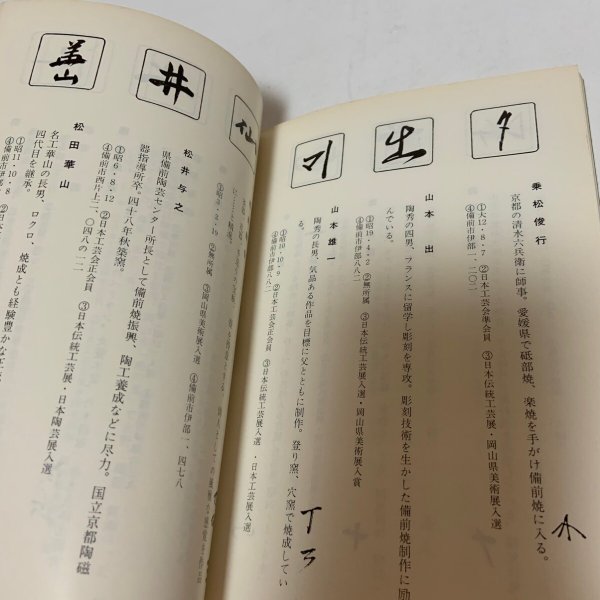 乗松俊行
京都の清水六兵衛に師事。愛媛県で砥部焼、楽焼を手がけ備前焼に入る。
①大12・8・7　②日本工芸会準会員　③日本伝統工芸展・岡山県美術展入選
④備前市伊部一、二〇二
出
山本　出
陶秀の四男、フランスに留学し彫刻を専攻。彫刻技術を生かした備前焼制作に励
んでいる。
①昭19・4・2　②無所属　③日本伝統工芸展入選・岡山県美術展入賞
④備前市伊部八八二
山本雄一
陶秀の長男、気品ある作品を目標に父とともに制作。登り窯、穴窯で焼成してい
る。
①昭10・10・9　②日本工芸会正会員　③日本伝統工芸展入選・日本工芸会
④備前市伊部八八二
仙
②無所属　③岡山県美術展入選　④備前市伊部一、四七八
井
松井与之
県備前陶芸センター所長として備前焼振興、陶工養成などに尽力。国立京都陶磁
器指導所卒。四十八年秋築窯。
①昭6・8・12　②日本工芸会正会員　③日本伝統工芸展・日本陶芸展入選
④備前市西片上二、〇四八の一二
華山
松田華山
名工華山の長男、ロクロ、焼成とも経験豊かな
四代目を継承。
①昭11・10・8　②日本工
④備前市伊部